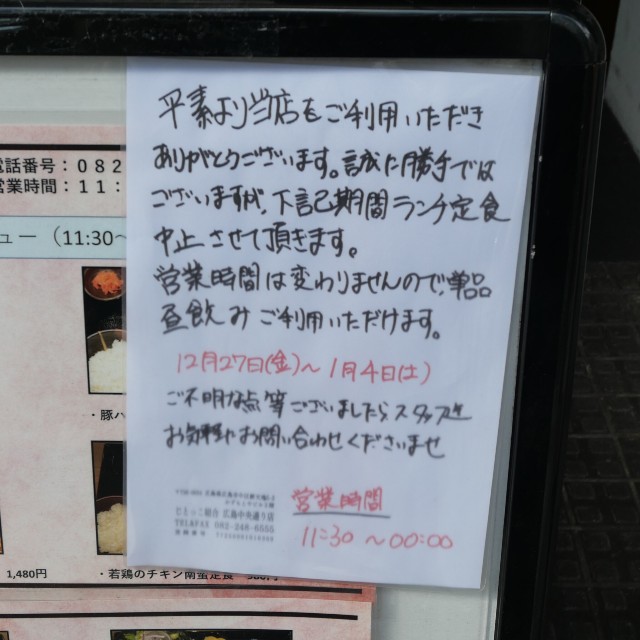 平素より当店をご利用いただき
ありがとうございます。誠に勝手では
ございますが、下記期間ランチ定食
中止させて頂きます。
営業時間は変わりませんので、単品
昼飲みご利用いただけます。
12月27日(金)～1月4日(土)
ご不明な点等ございましたらスタッフまで
お気軽にお問い合わせくださいませ
営業時間
11:30 ～00:00
広島中央通り店
電話番号：082
営業時間：11：
ュー（11:30～
・豚バ
1,480円
・若鶏のチキン南蛮定食